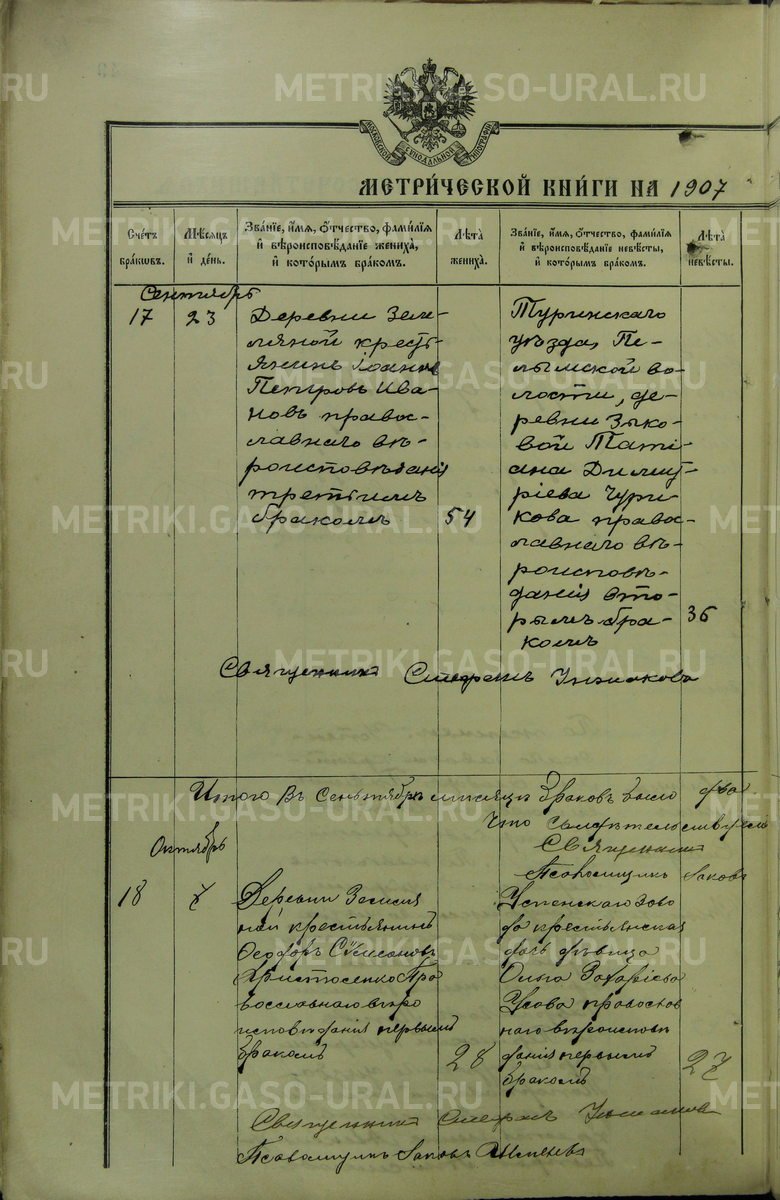 МОСКОВСКОЙ СѴНОДАЛЬНОЙ ТИПОГРАФІИ
МЕТРИ́ЧЕСКОЙ КНИ́ГИ НА 1907
Сче́тъ бра́ковъ.
Мѣ́сяцъ и де́нь.
Зва́нїе, и́мя, о́тчество, фами́лїя и вѣроисповѣ́данїе жениха̀, и кото́рымъ бра́комъ.
Лѣта̀ жениха̀.
Зва́нїе, и́мя, о́тчество, фами́лїя и вѣроисповѣ́данїе невѣ́сты, и кото́рымъ бра́комъ.
Лѣта̀ невѣ́сты.
Сентябрь
17
23
Деревни Земляной
крестьянинъ Іоаннъ
Петровъ Ива-
новъ право-
славнаго вѣ-
роисповѣданія
третьимъ
бракомъ
54
Туринскаго
уѣзда Пе-
лымской во-
лости, де-
ревни Зыко-
вой Тати-
ана Димит-
ріева Чури-
кова право-
славнаго вѣ-
роисповѣ-
данія вто-
рымъ бра-
комъ
36
Священникъ Стефанъ
Итого въ Сентябрѣ мѣсяцѣ браковъ было два
Что свидѣтельствуемъ
Священникъ
Псаломщикъ Іаковъ
Октябрь
18
7
Деревни Земля
ной крестьянинъ
Ѳеодоръ Симеоновъ
Христосенко Пра
вославнаго вѣро
исповѣданія первымъ
бракомъ
28
Успенскаго заво
да крестьянская
дочь дѣвица
Ольга Захаріева
Усова православ
наго вѣроисповѣ
данія первымъ
бракомъ
27
Священникъ Стефанъ
Псаломщикъ Іаковъ
METRIKI.GASO-URAL.RU